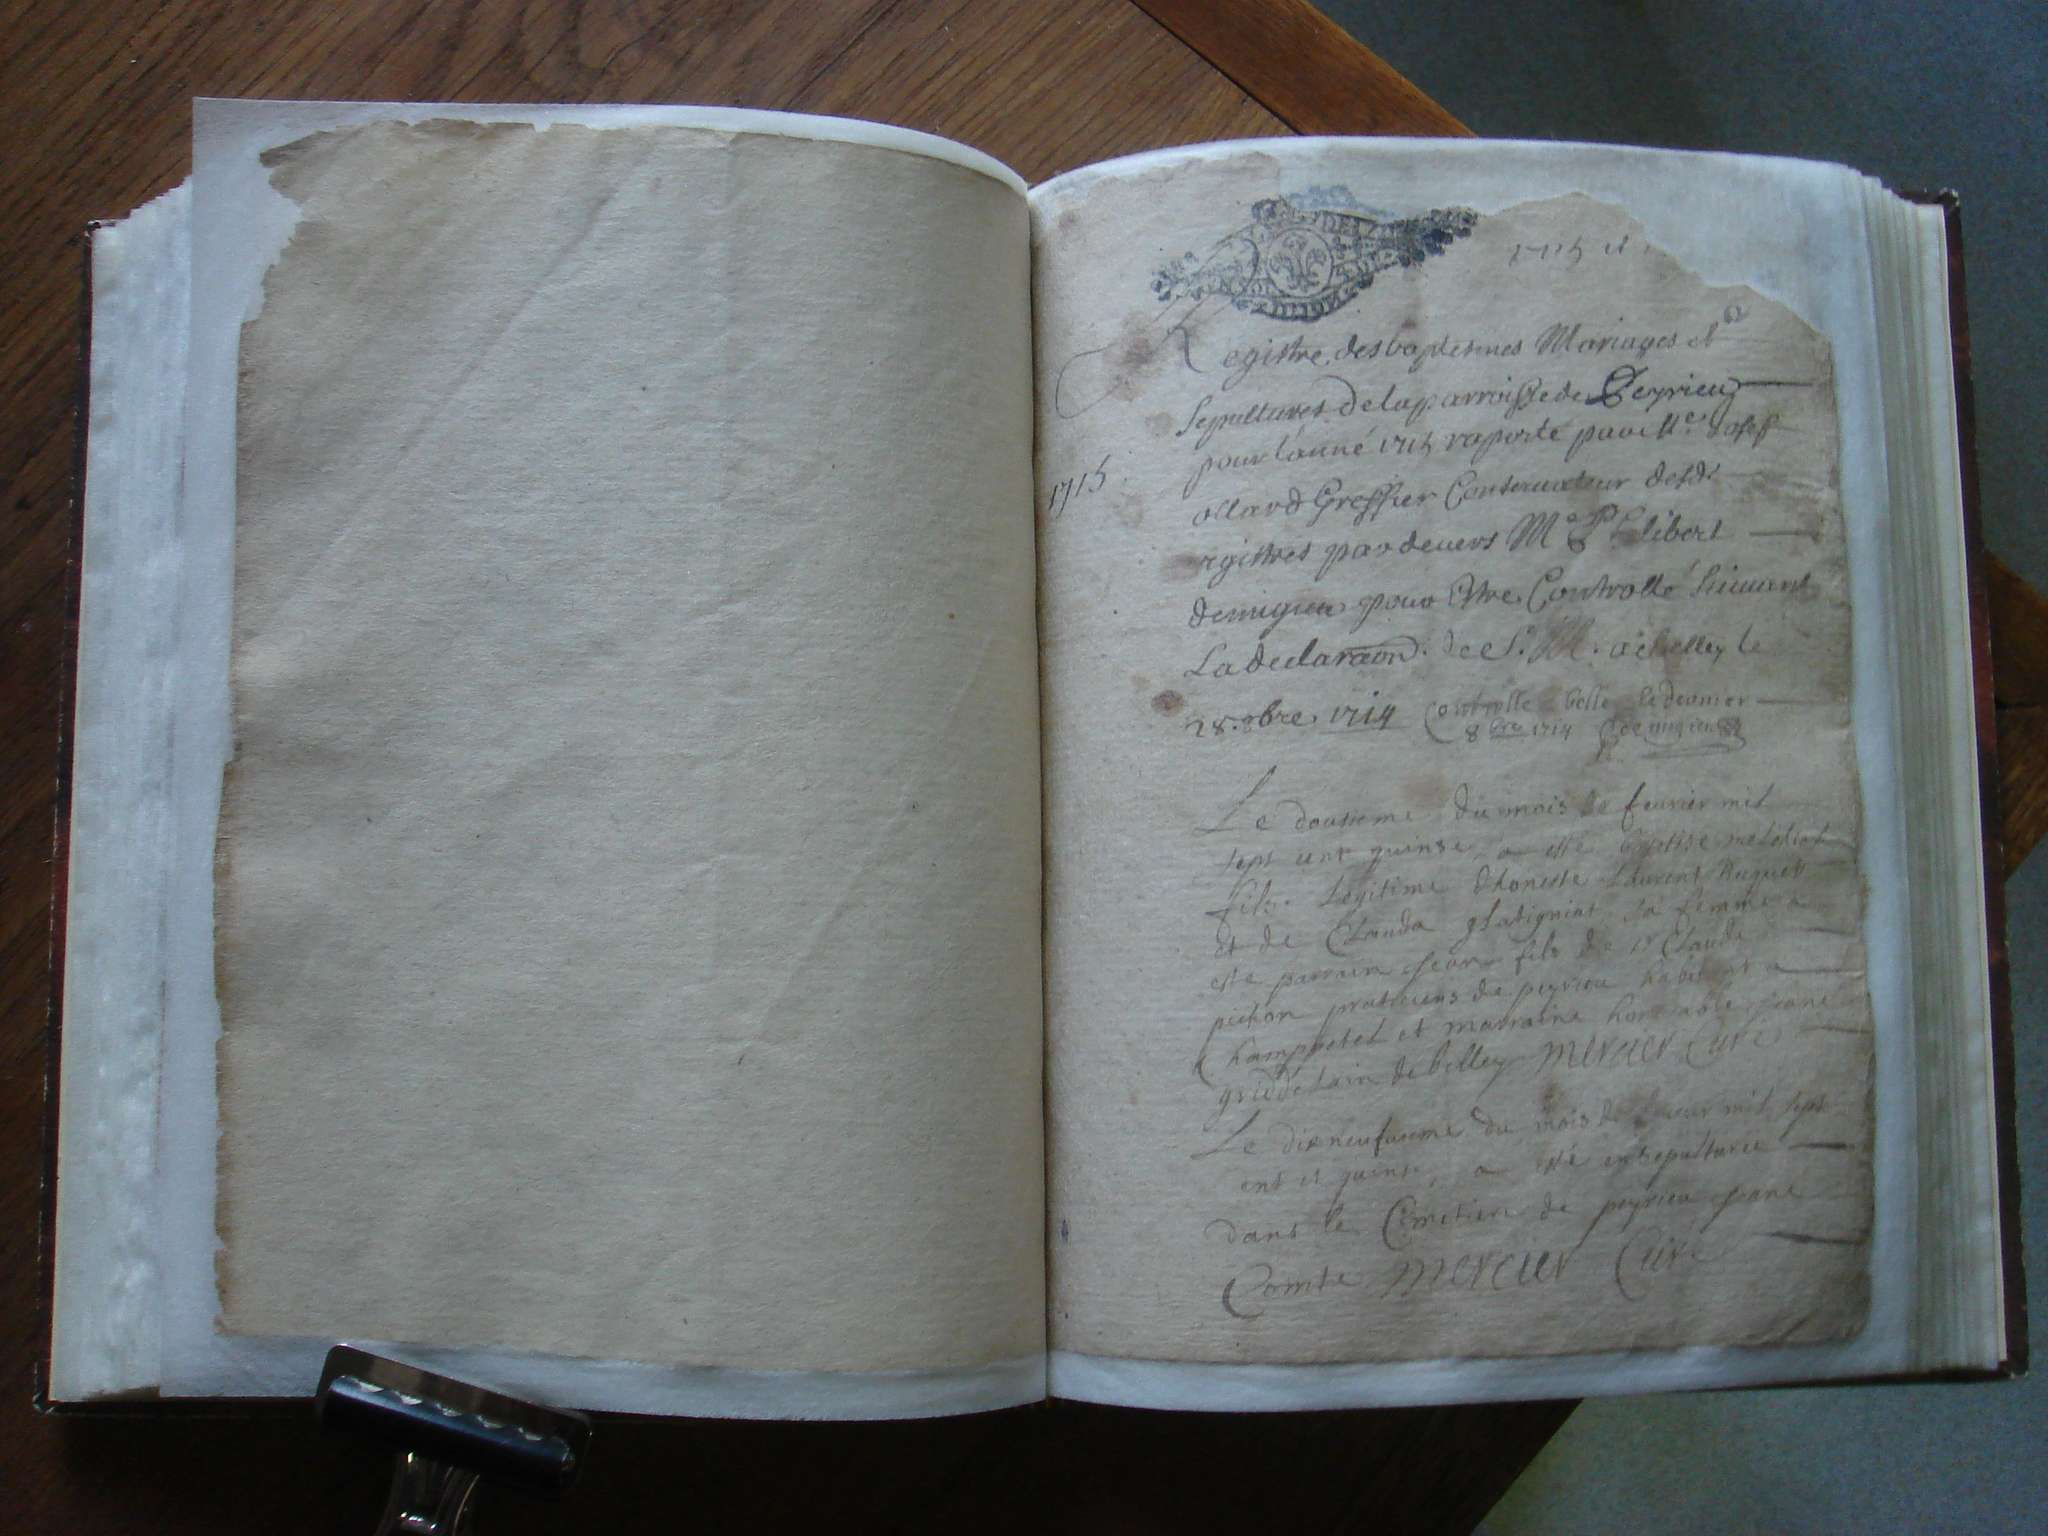 DIJON
1715 et
Registre des baptesmes Mariages et
Sepultures de la parroisse de Peyrieu
pour l'anné 1715 raporté par Me
ollard Greffier Conseruateur desd
rgistres par deuers Me Philibert
demigieu pour Estre Controllé suiuant
La declaraon de S. M. a belley le
28. 8bre 1714 Controlle belle le dernier
8bre 1714 demigieu
1715
Le dousieme du mois de feurier mil
sept cent quinse, a esté
fils Legitime dhoneste Laurent Huguet
et de Clauda sa femme a
esté parrain Jean fils de sr Claude
pichon praticiens de peyrieu habitant a
Champtel et marraine honorable Jeane
de belley mercier Curé
Le dixneufuieme du mois de mil sept
ent et quinse, a esté ensepulturée
dans le Cimetiere de peyrieu Jeane
Comte mercier Curé